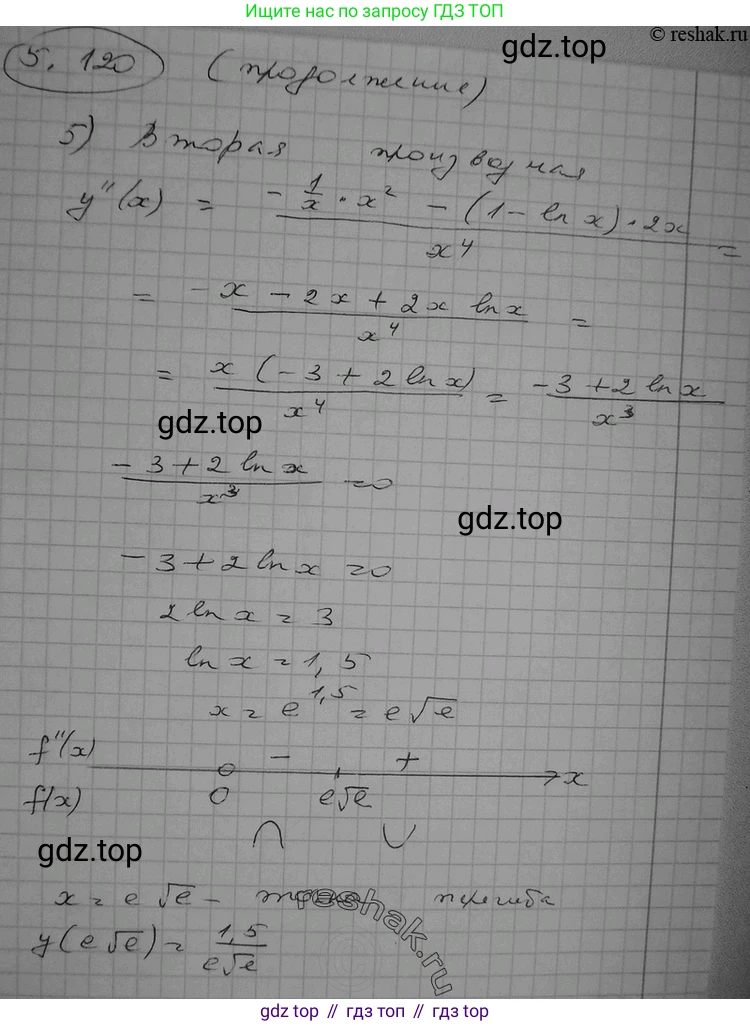 Ищите нас по запросу ГДЗ ТОП
© reshak.ru
gdz.top
5.120 (продолжение)
5) Вторая производная
y''(x) = \frac{-\frac{1}{x} \cdot x^2 - (1 - \ln x) \cdot 2x}{x^4} =
= \frac{-x - 2x + 2x \ln x}{x^4} =
= \frac{x(-3 + 2 \ln x)}{x^4} = \frac{-3 + 2 \ln x}{x^3}
gdz.top
\frac{-3 + 2 \ln x}{x^3} = 0
gdz.top
-3 + 2 ln x = 0
2 ln x = 3
ln x = 1,5
x = e^{1,5} = e√e
f''(x) - + x
f(x) 0 e√e
∩ ∪
gdz.top
x = e√e – точка перегиба
reshak.ru
y(e√e) = \frac{1,5}{e√e}
gdz top // гдз топ // gdz top